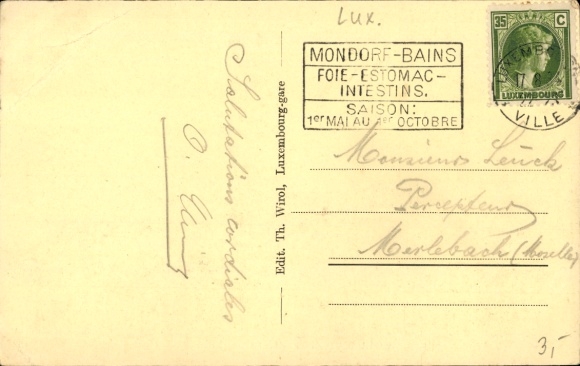 Lux.
35 C
LUXEMBOURG
LUXEMBO
17 8
VILLE
MONDORF-BAINS
FOIE-ESTOMAC-
INTESTINS.
SAISON:
1er MAI AU 1er OCTOBRE
Salutations cordiales
Edit. Th. Wirol, Luxembourg-gare
Monsieur Leuck
Percepteur
Merlebach (Moselle)
3,-